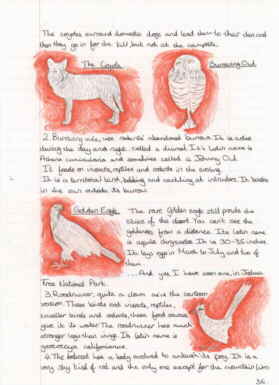 The coyotes surround domestic dogs and lead them to their den and
then they go in for the kill but not at the campsite.
The Coyote
Burrowing Owl
2. Burrowing owls, use rodents' abandoned burrows. It is active
during the day and night, called a diurnal. Its Latin name is
Athene cunicularia and sometimes called a Johnny Owl.
It feeds on insects, reptiles and rodents in the evening.
It is a territorial bird, bobbing and cackling at intruders. It basks
in the sun outside its burrow.
Golden Eagle
The rare Golden eagle still prowls the
skies of the desert. You can't see the
goldness from a distance. Its latin name
is aquila chrysaetos. It is 30-35 inches.
It lays eggs in March to July and two of
them.
...And yes I have seen one, in Joshua
Tree National Park.
3. Roadrunner, quite a clown as in the cartoon
version. These birds eat insects, reptiles,
smaller birds and rodents, these food sources
give its water. The roadrunner has much
stronger legs than wings. Its latin name is
geococcyx californianus.
4. The bobcat has a body evolved to ambush its prey. It is a
very shy kind of cat and the only one except for the mountain lion